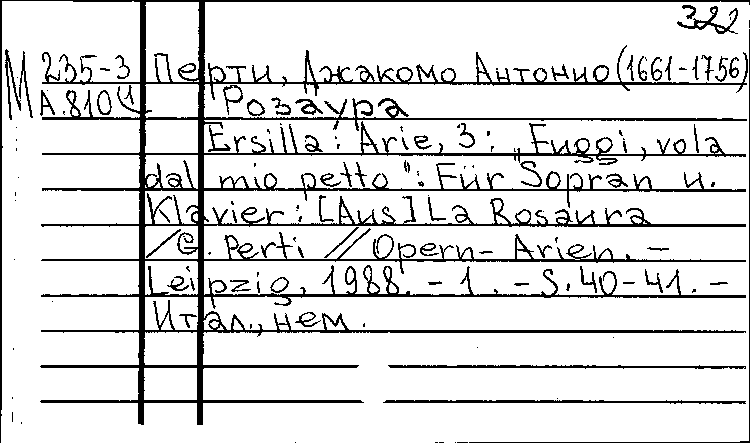 322
М 235-3 Перти, Джакомо Антонио (1661-1756)
А.810(1 Розаура
Ersilla: Arie, 3: „Fuggi, vola
dal mio petto": Für Sopran u.
Klavier: [Aus] La Rosaura
/G. Perti // Opern-Arien. –
Leipzig, 1988. – 1. – S. 40-41. –
Итал., нем.